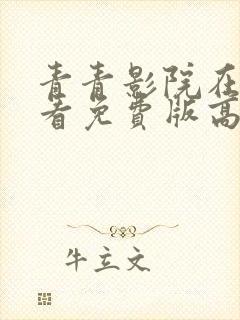 青青影院在
看免费版高
牛立文